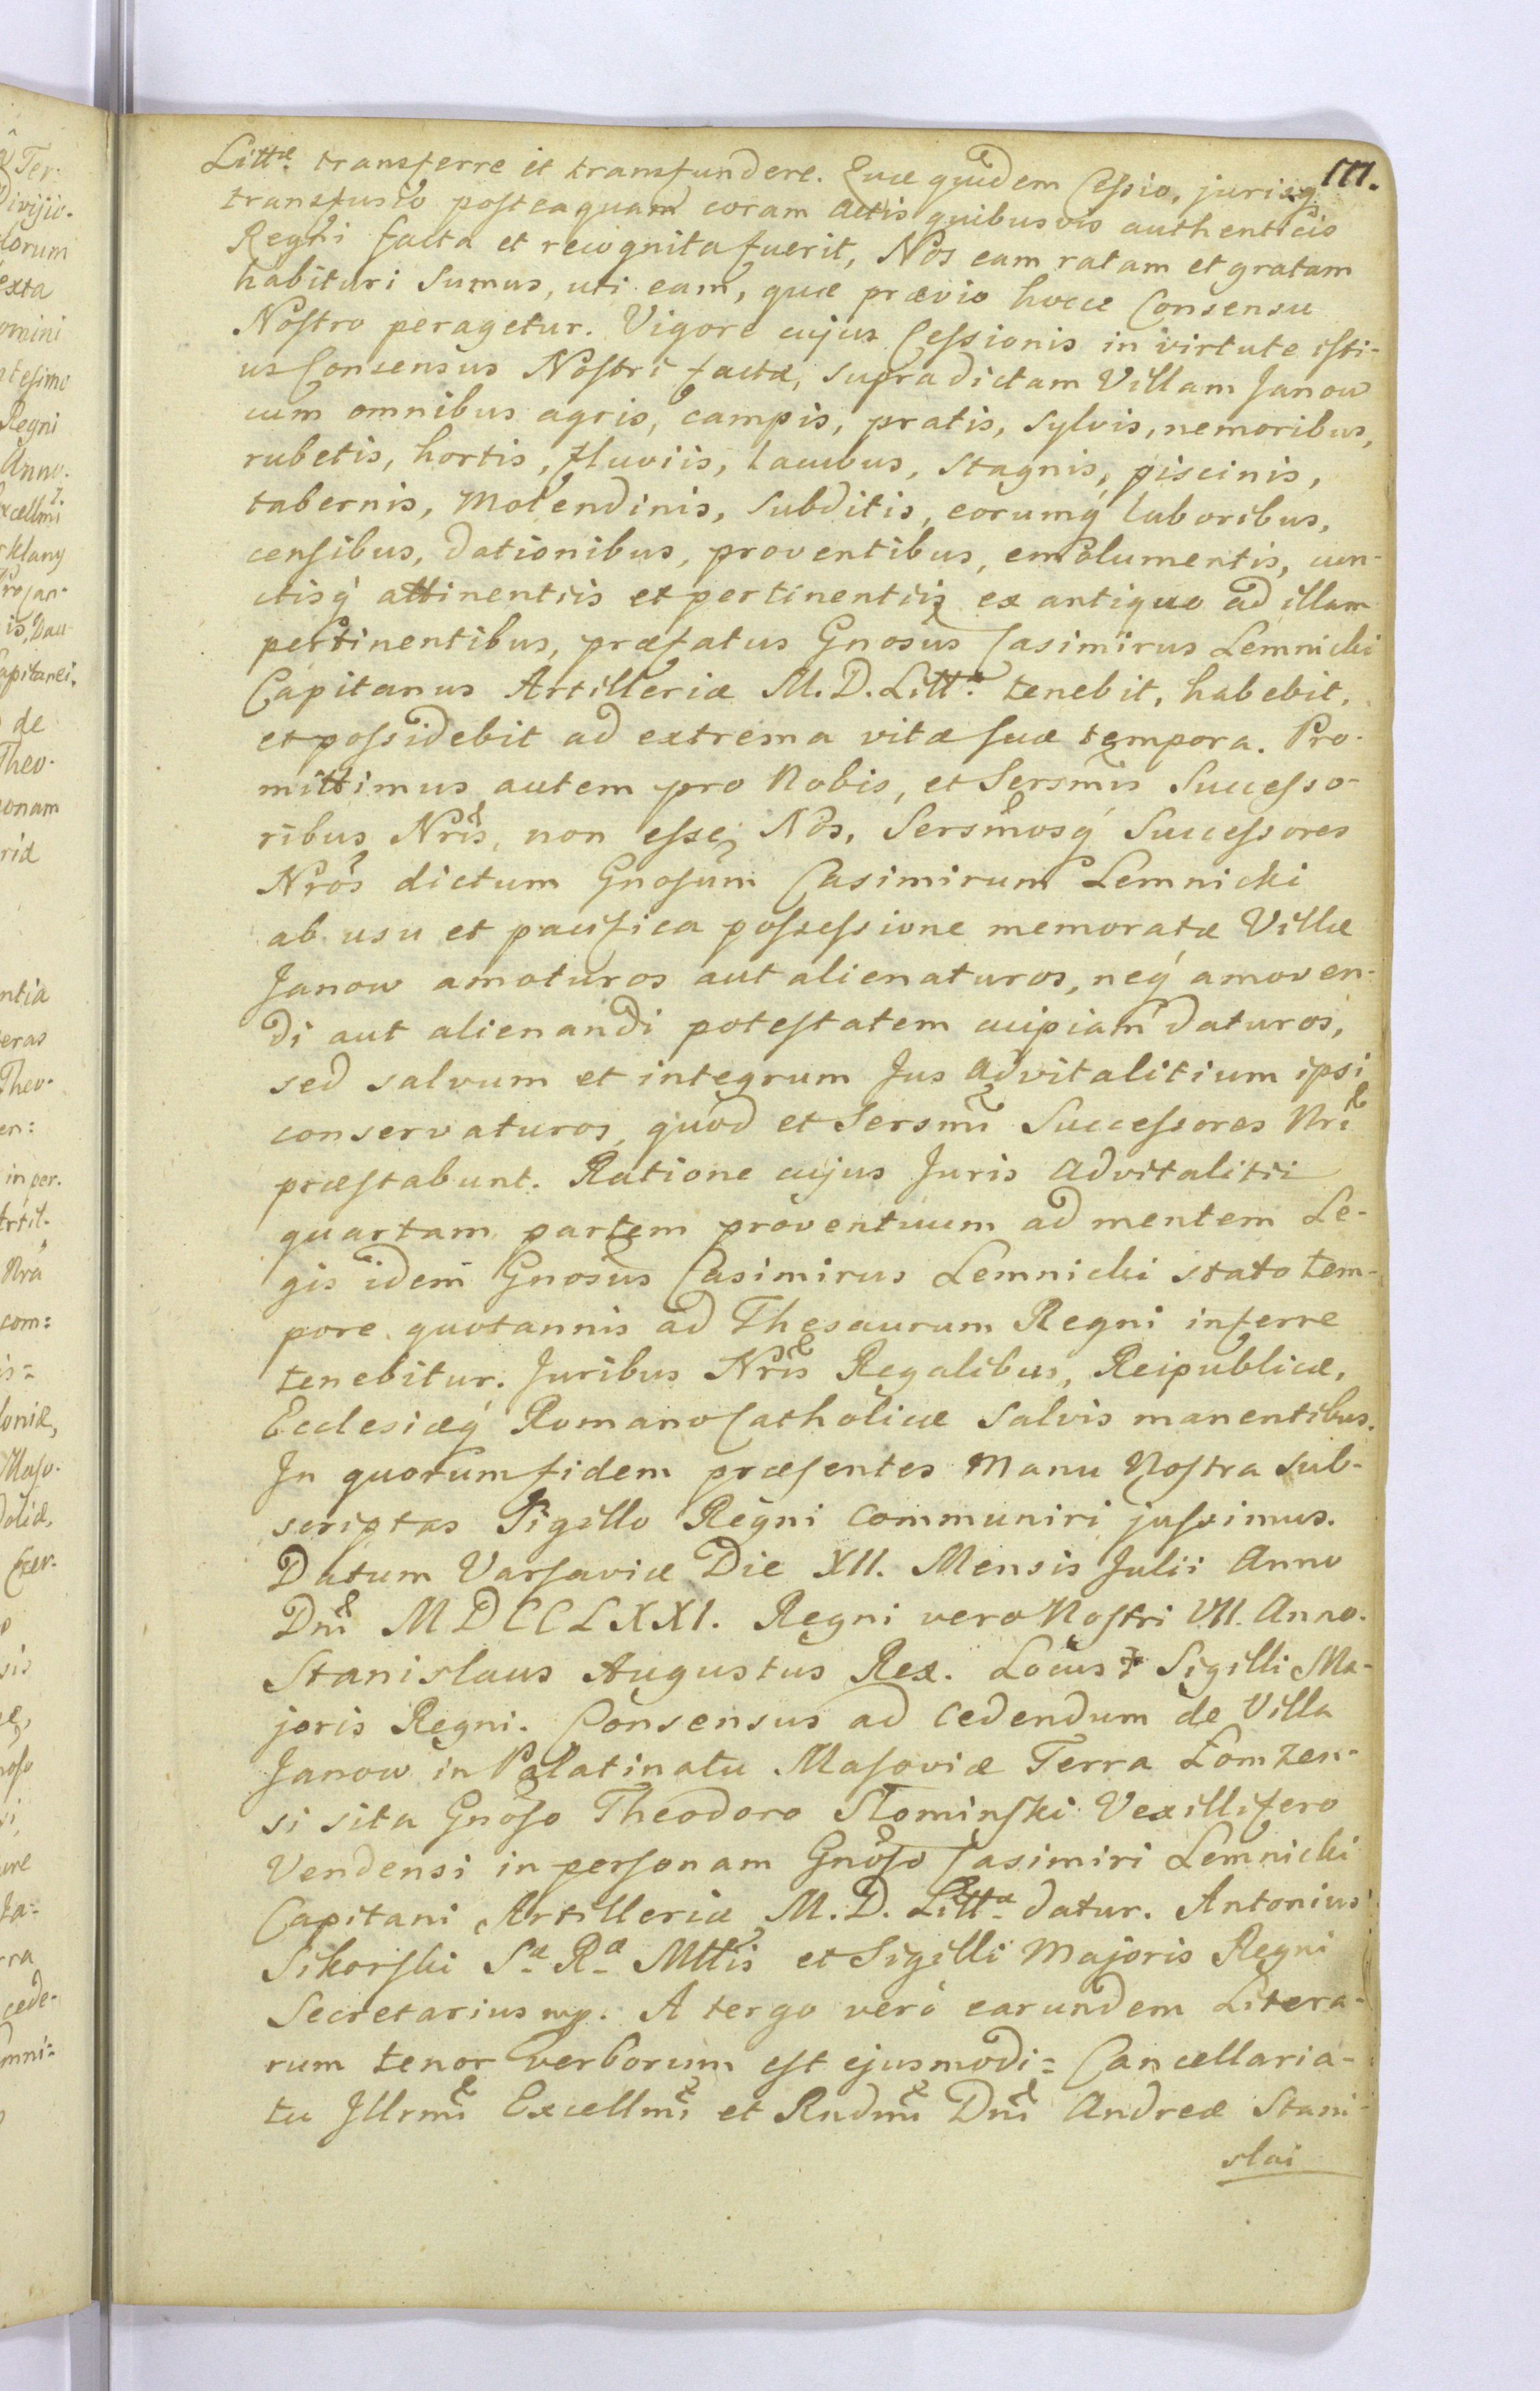 171.
Littæ transferre et transfundere. Quæ quidem Cessio, jurisq́
transfusio posteaquam coram Actis quibusvis authenticis
Regni facta et recognita fuerit, Nos eam ratam et gratam
habituri sumus, uti eam, quæ prævio hocce Consensu
Nostro peragetur. Vigore cujus Cessionis in virtute isti-
us Consensus Nostri factæ, supradictam Villam Janow
cum omnibus agris, campis, pratis, sylvis, nemoribus,
rubetis, hortis, fluviis, lacubus, stagnis, piscinis,
tabernis, Molendinis, Subditis, eorumq́ laboribus,
censibus, dationibus, proventibus, emolumentis, cun-
ctisq́ attinentiis et pertinentiis ex antiquo ad illam
pertinentibus, præfatus Gnosus Casimirus Lemnicki
Capitanus Artilleriæ M. D. Littæ tenebit, habebit,
et possidebit ad extrema vitæ suæ tempora. Pro-
mittimus autem pro Nobis, et Sersmis Successo-
ribus Nris, non esse, Nos, Sersmosq́ Successores
Nros dictum Gnosum Casimirum Lemnicki
ab usu et pacifica possessione memoratæ Villæ
Janow amoturos aut alienaturos, neq́ amoven-
di aut alienandi potestatem cuipiam daturos,
sed salvum et integrum Jus Advitalitium ipsi
conservaturos, quod et Sersmi Successores Nri
præstabunt. Ratione cujus Juris Advitalitii
quartam partem proventuum ad mentem Le-
gis idem Gnosus Casimirus Lemnicki stato tem-
pore quotannis ad Thesaurum Regni inferre
tenebitur. Juribus Nris Regalibus, Reipublicæ,
Ecclesiæq́ Romano Catholicæ salvis manentibus.
In quorum fidem præsentes Manu Nostra sub-
scriptas Sigillo Regni communiri jussimus.
Datum Varsaviæ Die XII. Mensis Julii Anno
Dni MDCCLXXI. Regni vero Nostri VII. Anno.
Stanislaus Augustus Rex. Locus Sigilli Ma-
joris Regni. Consensus ad cedendum de Villa
Janow in Palatinatu Masoviæ Terra Łomzen-
si sita Gnoso Theodoro Słominski Vexillifero
Vendensi in personam Gnoso Casimiri Lemnicki
Capitani Artilleriæ M. D. Littæ datur. Antonius
Sikorski Sæ Ræ Mttis et Sigilli Majoris Regni
Secretarius mp. A tergo verò earundem Litera-
rum tenor verborum est ejusmodi = Cancellaria-
tu Jllrmi Excellmi et Rndmi Dni Andreæ Stani-
slai